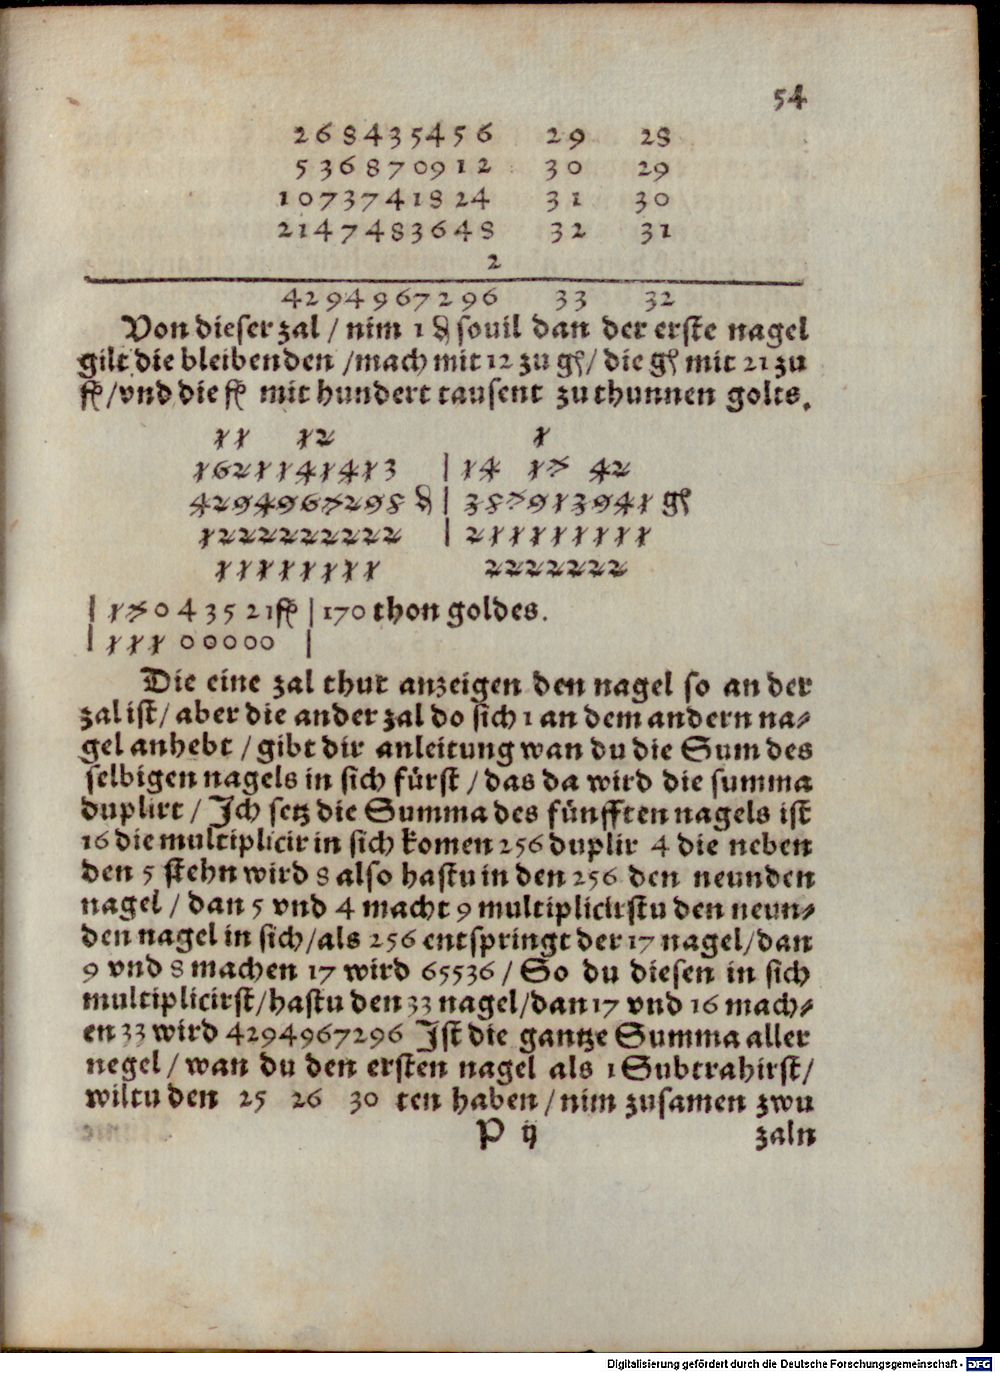 54
268435456 29 28
536870912 30 29
1073741824 31 30
2147483648 32 31
2
4294967296 33 32
Von dieser zal / nim 1 ₰ souil dan der erste nagel
gilt die bleibenden / mach mit 12 zu gß / die gß mit 21 zu
fß / vnd die fß mit hundert tausent zu thunnen golts.
11 12 1
1621141413 | 14 17 42
4294967298 ₰ | 357913941 gß
1222222222 | 211111111
11111111 2222222
| 17043521 fß | 170 thon goldes.
| 11100000 |
Die eine zal thut anzeigen den nagel so an der
zal ist / aber die ander zal do sich 1 an dem andern na⸗
gel anhebt / gibt dir anleitung wan du die Sum des
selbigen nagels in sich fürst / das da wird die summa
duplirt / Ich setz die Summa des fünfften nagels ist
16 die multiplicir in sich komen 256 duplir 4 die neben
den 5 stehn wird 8 also hastu in den 256 den neunden
nagel / dan 5 vnd 4 macht 9 multiplicirstu den neun⸗
den nagel in sich / als 256 entspringt der 17 nagel / dan
9 vnd 8 machen 17 wird 65536 / So du diesen in sich
multiplicirst / hastu den 33 nagel / dan 17 vnd 16 mach⸗
en 33 wird 4294967296 Ist die gantze Summa aller
negel / wan du den ersten nagel als 1 Subtrahirst /
wiltu den 25 26 30 ten haben / nim zusamen zwu
P ij zaln
Digitalisierung gefördert durch die Deutsche Forschungsgemeinschaft - DFG